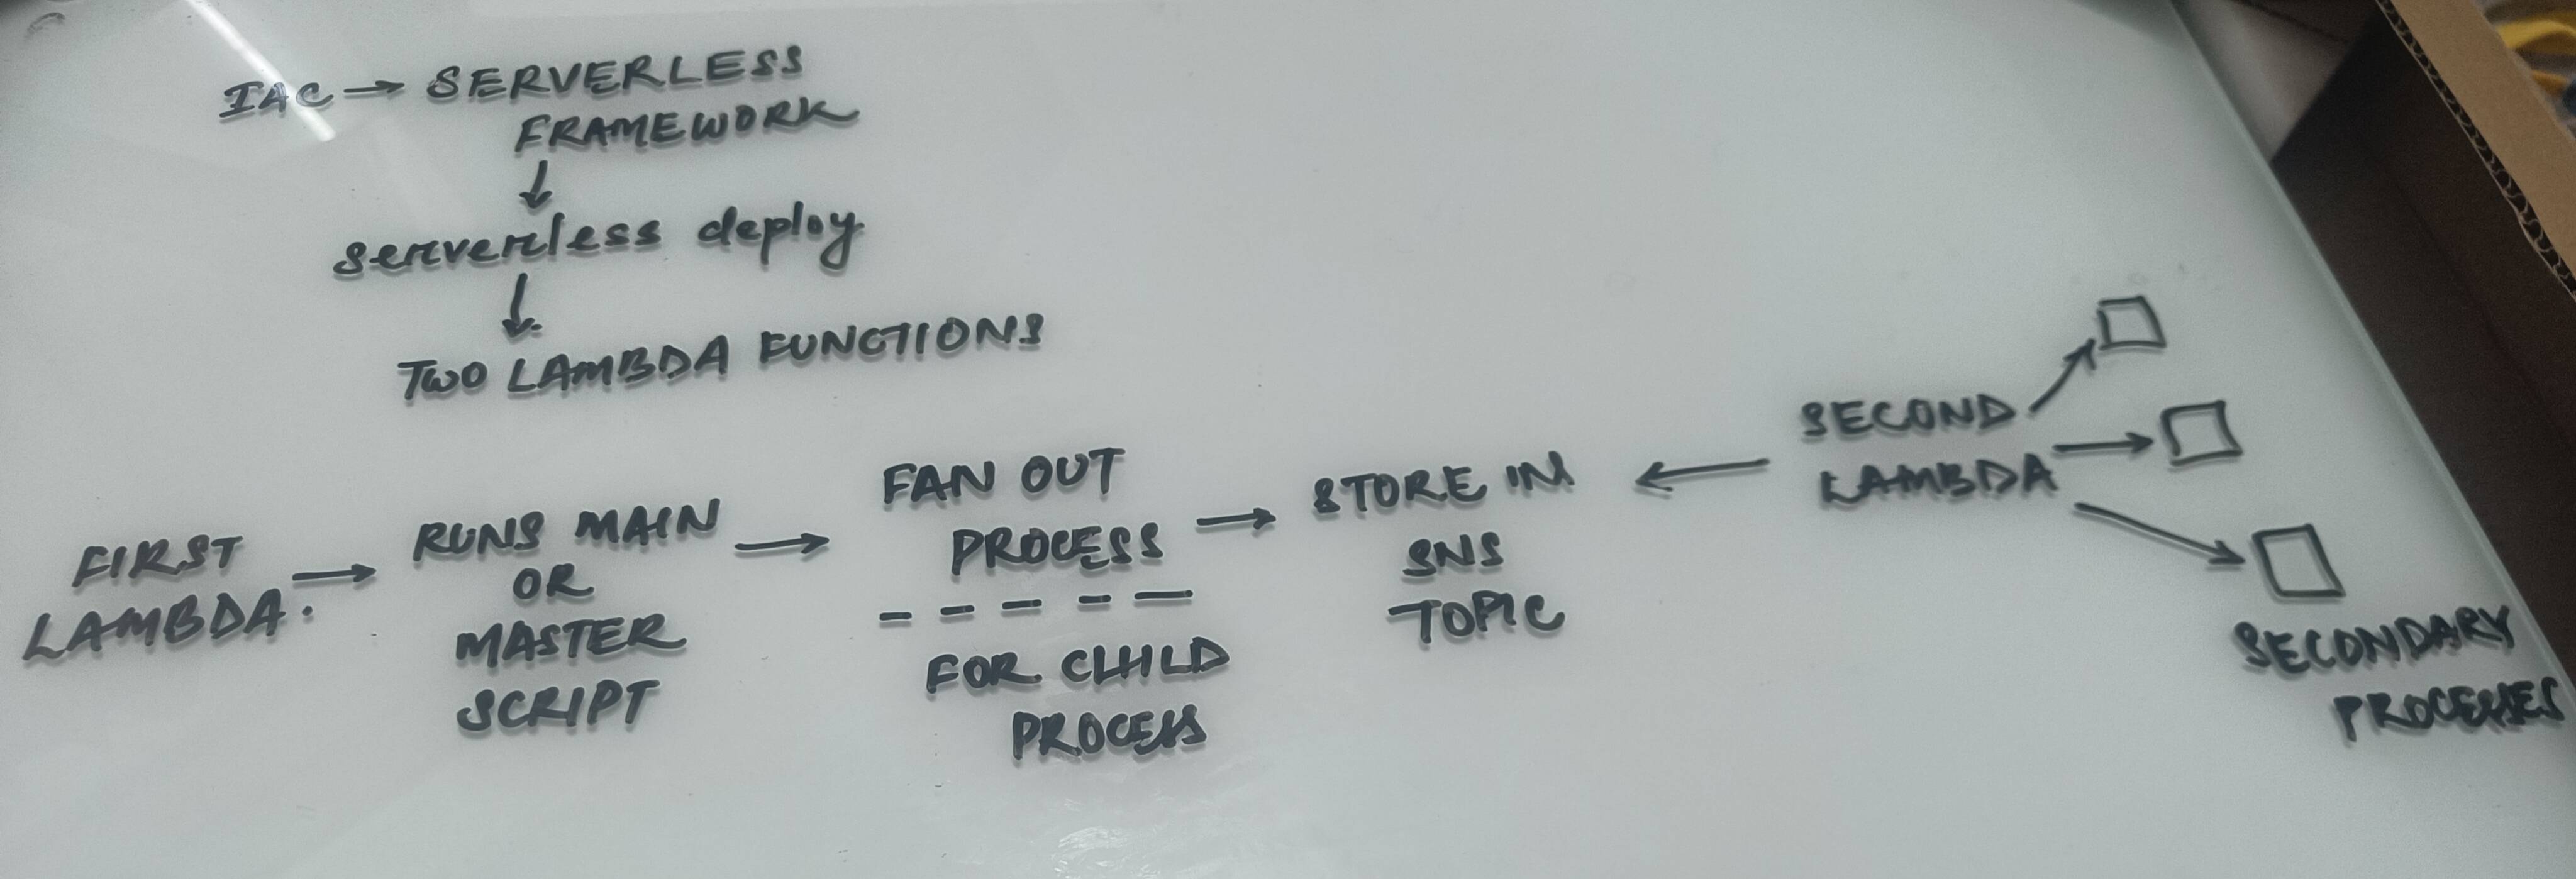 IAC → SERVERLESS
FRAMEWORK
↓
serverless deploy
↓
TWO LAMBDA FUNCTIONS
FIRST
LAMBDA.
→
RUNS MAIN
OR
MASTER
SCRIPT
→
FAN OUT
PROCESS
FOR CHILD
PROCESS
→
STORE IN
SNS
TOPIC
←
SECOND
LAMBDA
SECONDARY
PROCESSES